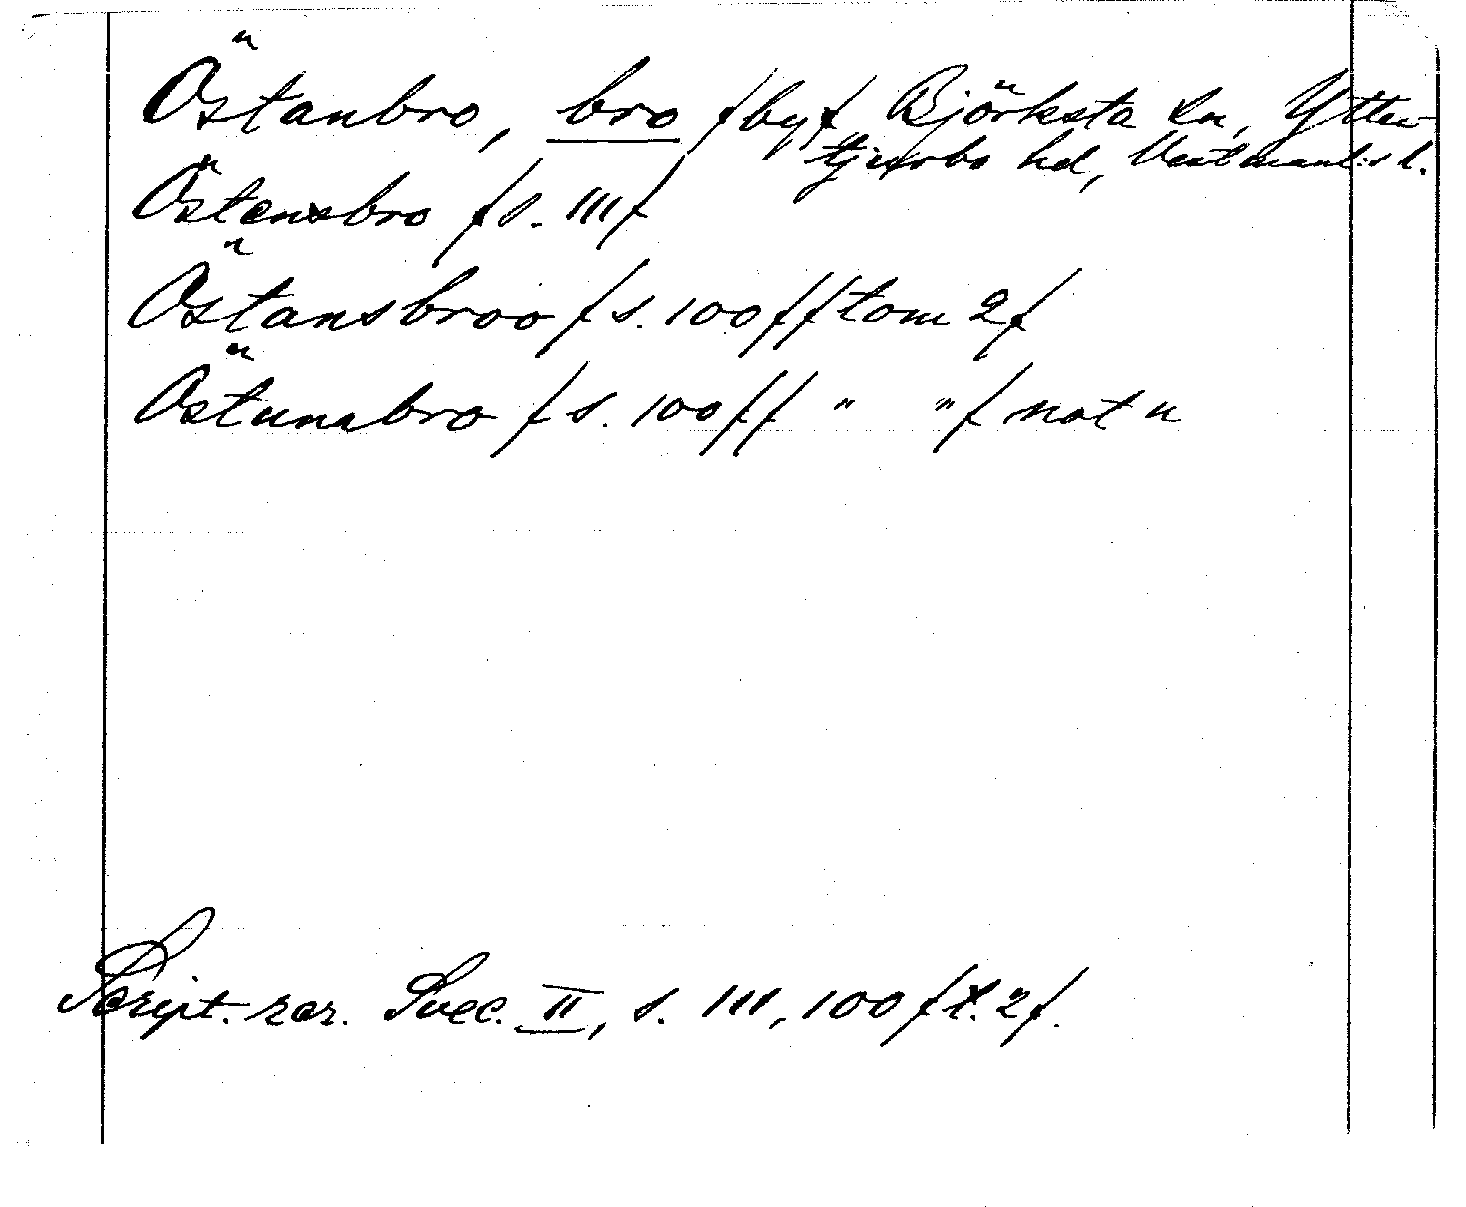 Östanbro, bro /by/ Björksta sn, Ytter-
tjurbo hd, Vestmanl:s l.
Östensbro /s. 111/
Östansbroo /s. 100/ /tom 2/
Östunabro /s. 100/ / " " / not u
Script. rer. Svec. II, s. 111, 100 /t. 2/.